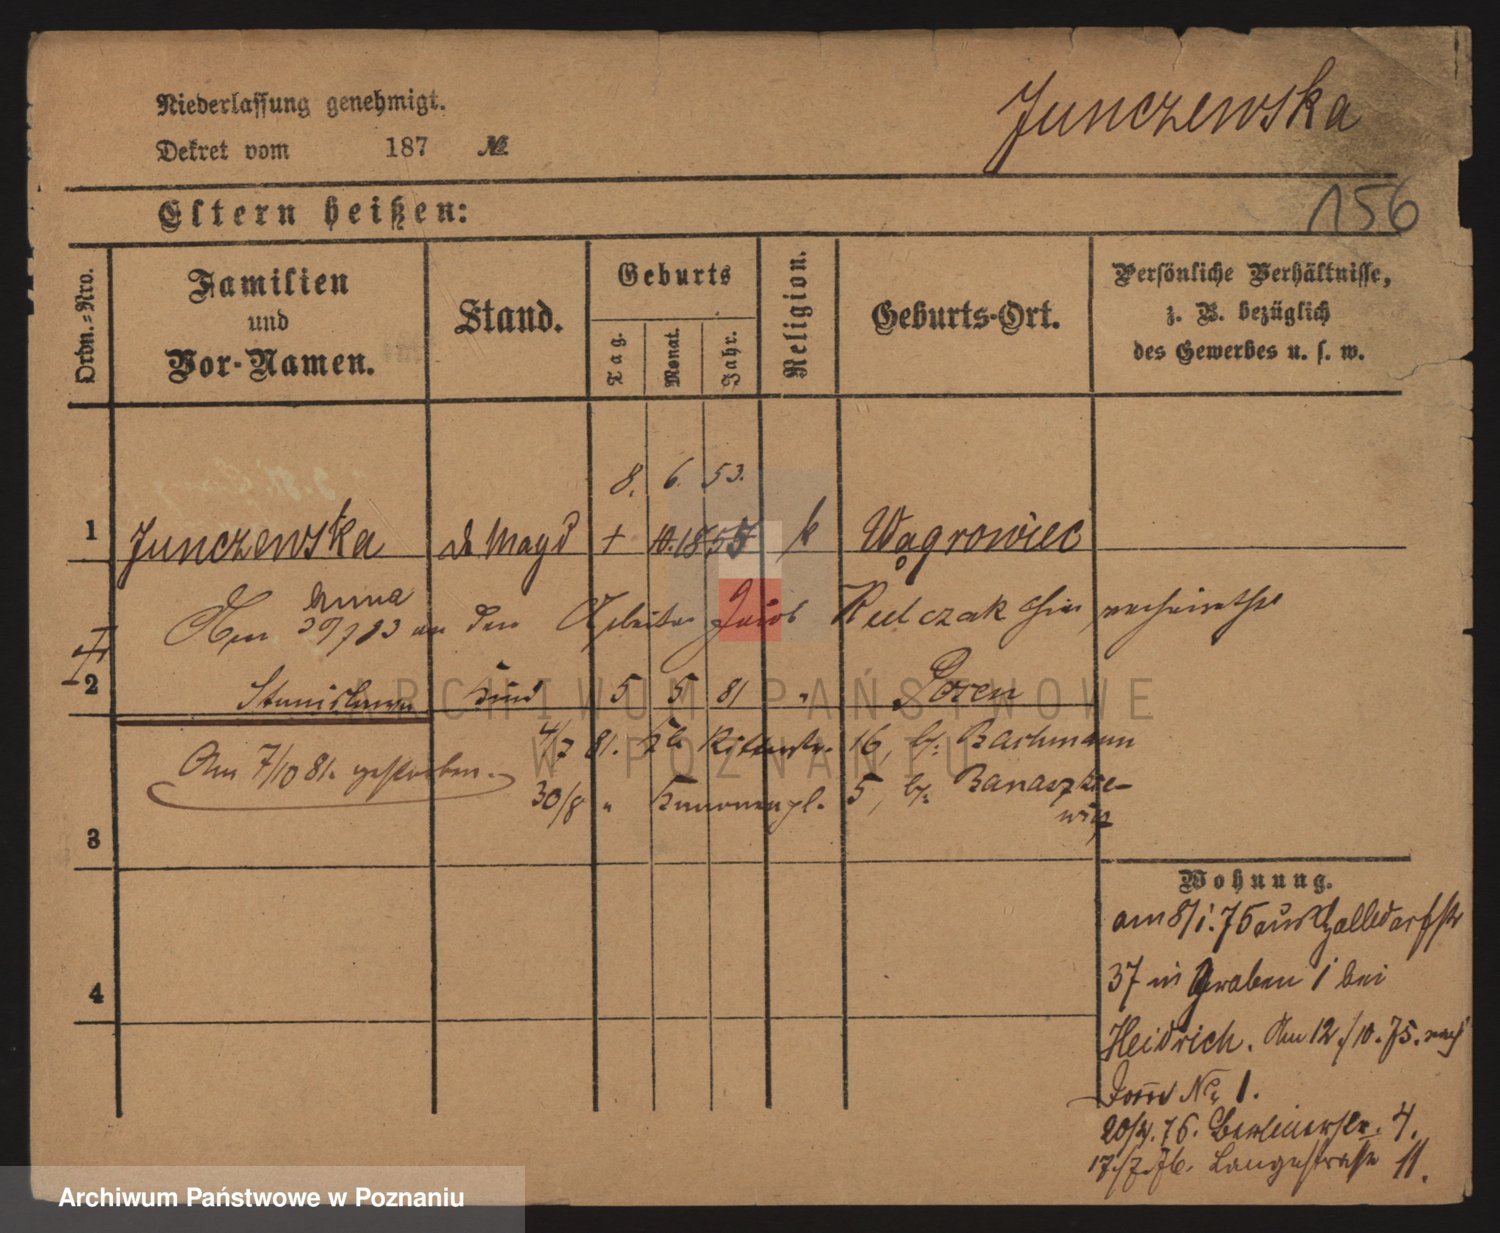 Niederlassung genehmigt.
Dekret vom 187 №
Junczewska
156
Eltern heißen:
Ordn.-Nro.
Familien
und
Vor-Namen.
Stand.
Geburts
Tag.
Monat.
Jahr.
Religion.
Geburts-Ort.
Persönliche Verhältnisse,
z. B. bezüglich
des Gewerbes u. s. w.
8. 6. 53.
1 Junczewska Magd k Wągrowiec
Anna
Am 30/7 83 an den Arbeiter Jacob Rulczak hier verheirathet
2 Stanislawa Kind 5 5 81 " Posen
4/7 81. Ritterstr. 16, b: Bachmann
Am 7/10 81. gestorben.
30/8 " Kanonenpl. 5, b: Banaszkie-
wicz
3
Wohnung.
am 8/1. 75 aus Halldorfstr
37 in Graben 1 bei
4
Heidrich. Am 12/10. 75. nach
Dom No 1.
20/4. 76. Berlinerstr. 4.
17/7. 76. Langestrasse 11.
ARCHIWUM PAŃSTWOWE
W POZNANIU
Archiwum Państwowe w Poznaniu